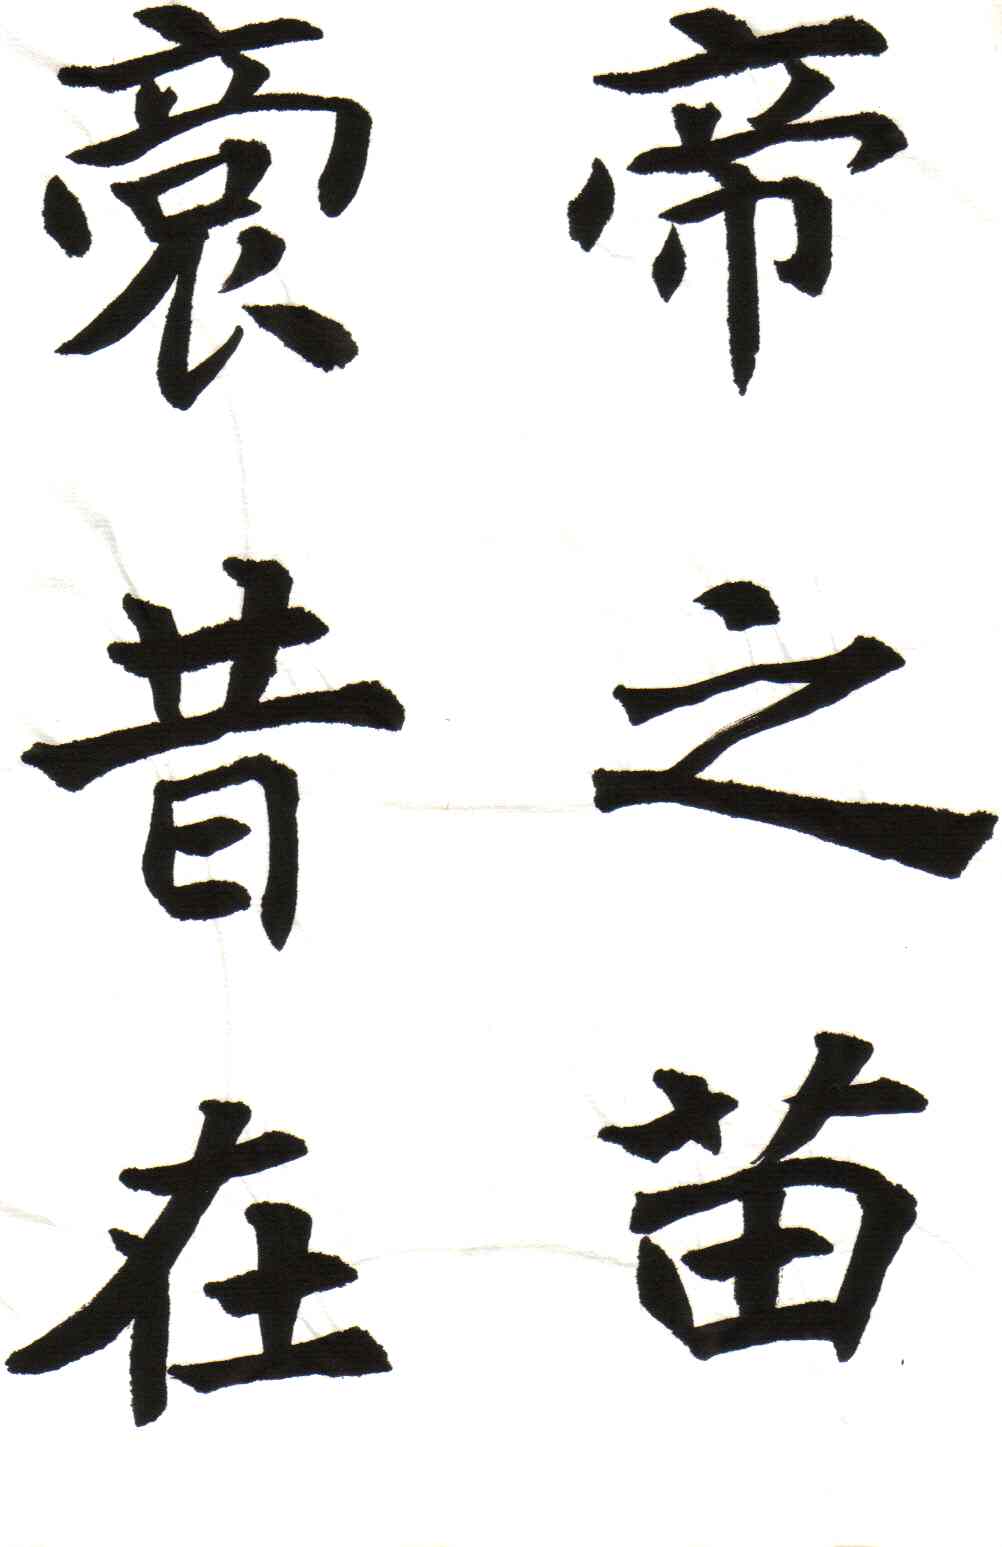 帝之苗
裔昔在